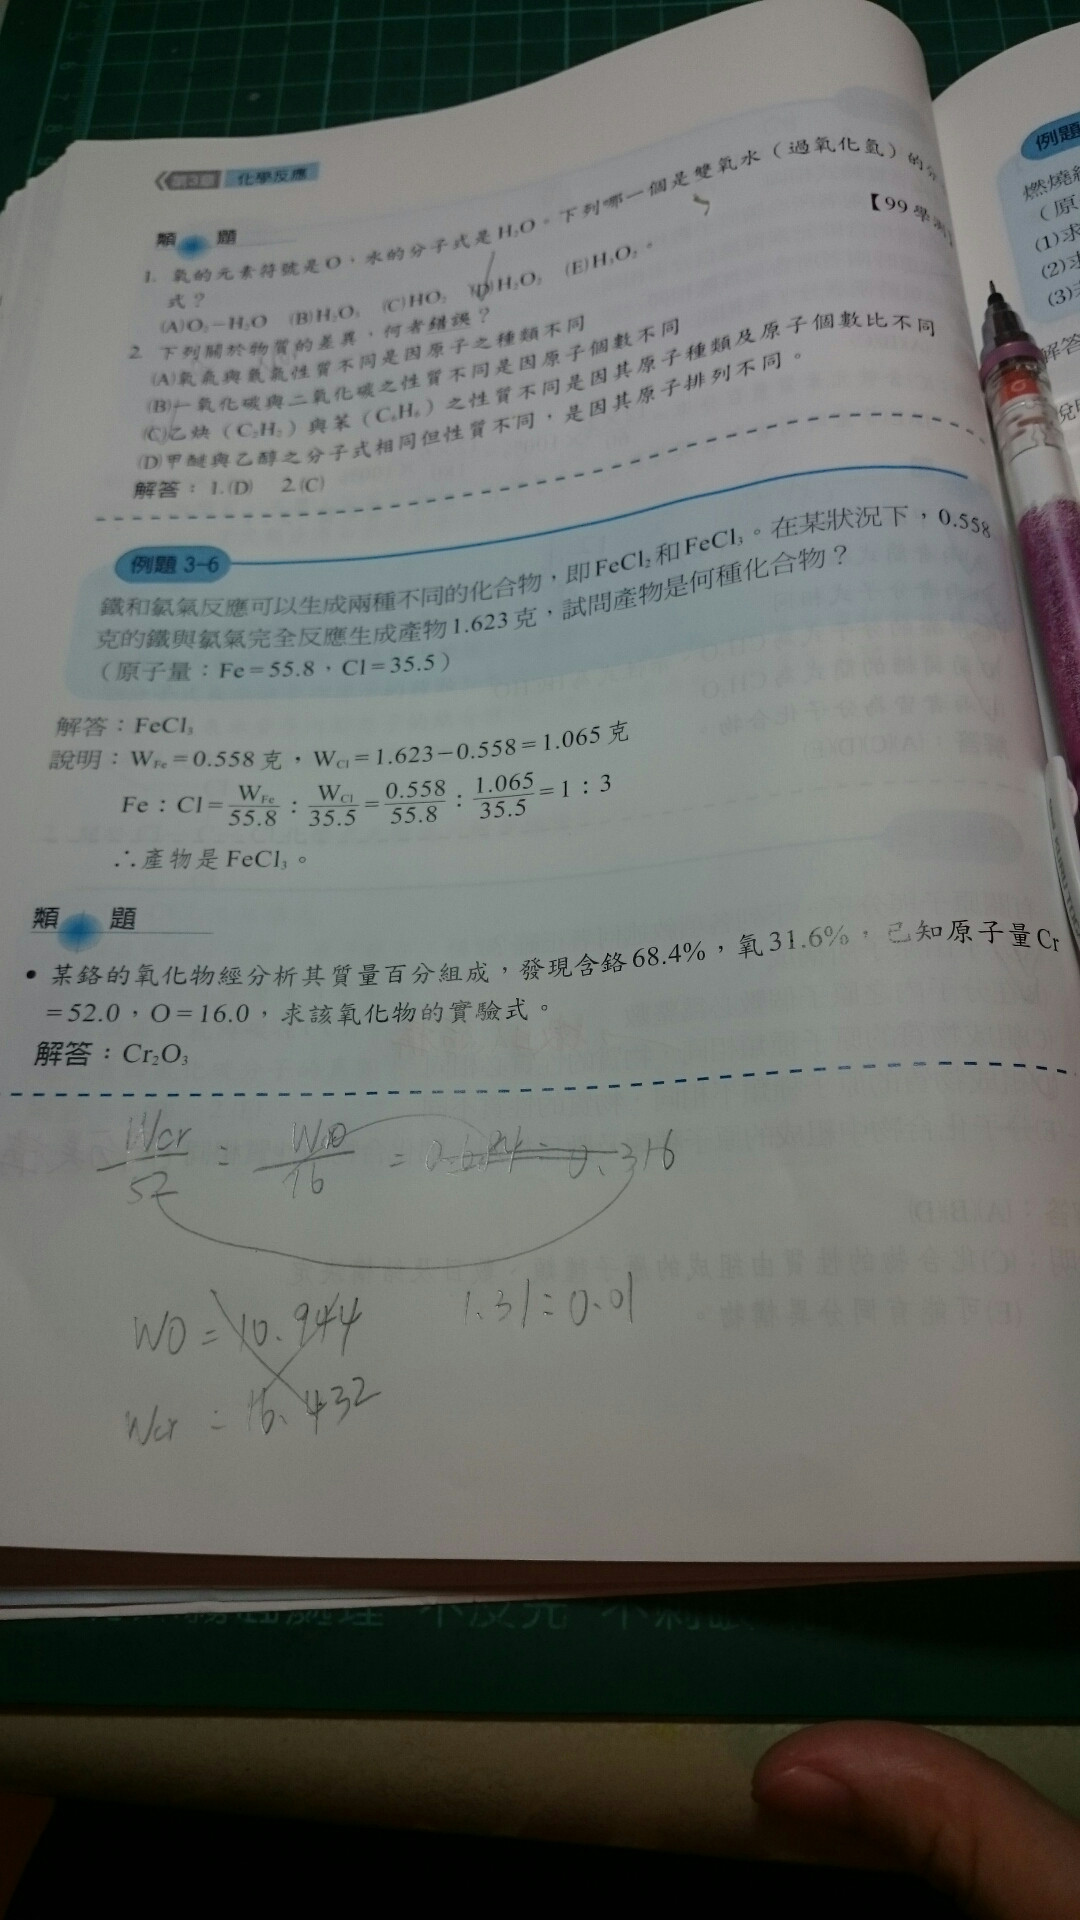 第3章 化學反應
類題
1. 氧的元素符號是O，水的分子式是H₂O。下列哪一個是雙氧水（過氧化氫）的分
式？
【99學測】
(A)O₂−H₂O (B)H₂O₃ (C)HO₂ (D)H₂O₂ (E)H₃O₂。
2. 下列關於物質的差異，何者錯誤？
(A)氧氣與氮氣性質不同是因原子之種類不同
(B)一氧化碳與二氧化碳之性質不同是因原子個數不同
(C)乙炔（C₂H₂）與苯（C₆H₆）之性質不同是因其原子種類及原子個數比不同
(D)甲醚與乙醇之分子式相同但性質不同，是因其原子排列不同。
解答：1.(D) 2.(C)
例題 3-6
鐵和氯氣反應可以生成兩種不同的化合物，即FeCl₂和FeCl₃。在某狀況下，0.558
克的鐵與氯氣完全反應生成產物1.623克，試問產物是何種化合物？
（原子量：Fe=55.8，Cl=35.5）
解答：FeCl₃
說明：W_Fe=0.558克，W_Cl=1.623−0.558=1.065克
Fe：Cl=W_Fe/55.8：W_Cl/35.5=0.558/55.8：1.065/35.5=1：3
∴產物是FeCl₃。
類題
• 某鉻的氧化物經分析其質量百分組成，發現含鉻68.4%，氧31.6%，已知原子量Cr
=52.0，O=16.0，求該氧化物的實驗式。
解答：Cr₂O₃
Wcr/52 : WO/16 = 0.684 : 0.316
WO = 10.944
1.31 : 0.01
Wcr = 16.432
例題
燃燒
（原
(1)求
(2)求
(3)
解答